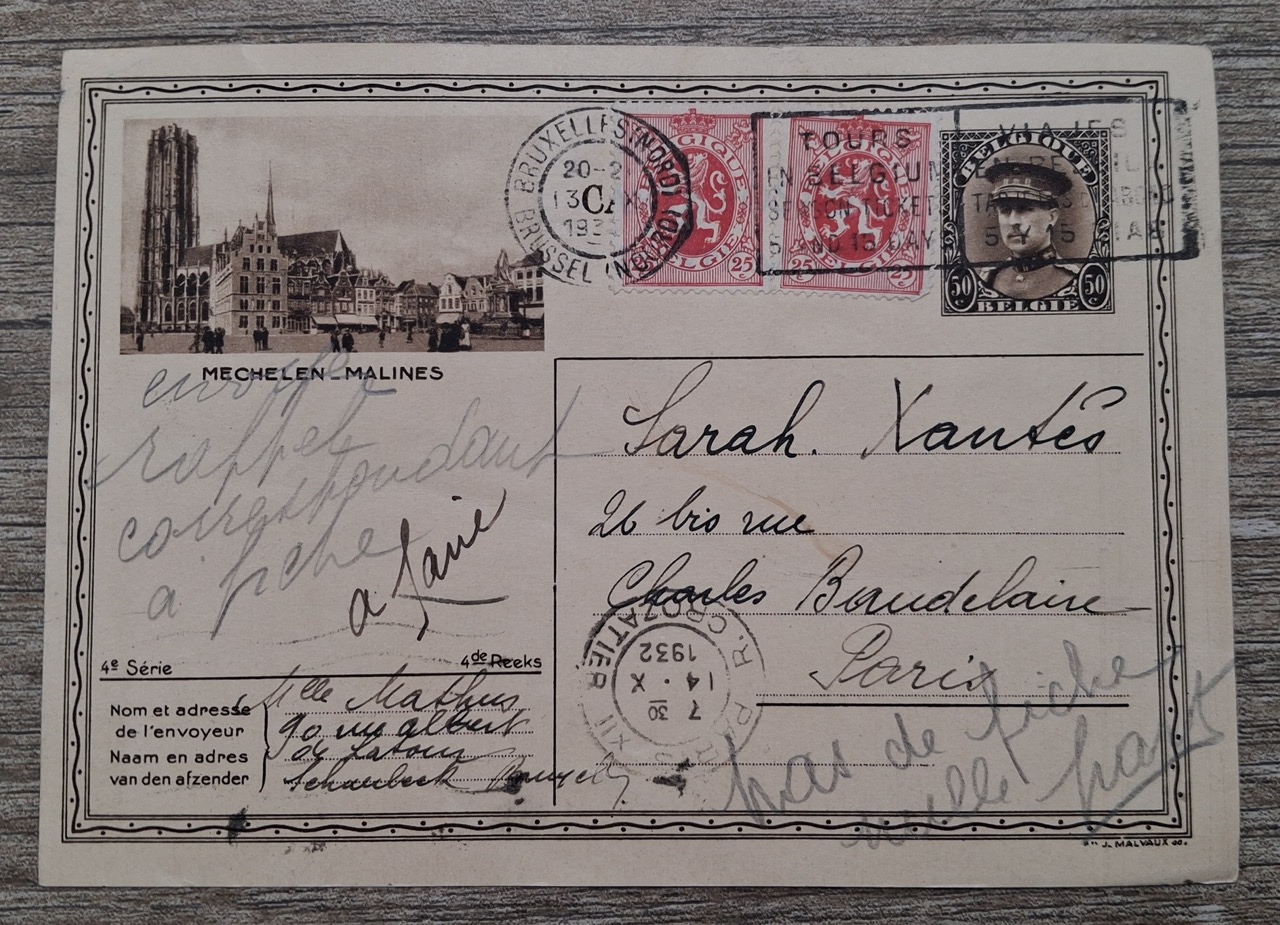 BRUXELLES (NORD)
BRUSSEL (NOORD)
20-2
13 X
193
CA
BELGIQUE
BELGIE
25 c
BELGIQUE
BELGIE
25 c 25 c
TOURS
IN BELGIUM
SEASON TICKETS
5 AND 15 DAYS
VIAJES
EN BELGI
5 Y 15 DIAS
BELGIQUE
50 c 50 c
BELGIE
MECHELEN-MALINES
envoyée
rappel
correspondant
a fiche
a faire
Sarah. Xantès
26 bis rue
Charles Baudelaire
Paris
R. CROZATIER
PARIS XII
7 30
14 · X
1932
pas de fiche
nulle part
4e Série
4de Reeks
Nom et adresse
de l'envoyeur
Naam en adres
van den afzender
Mlle Mathys
90 rue albert
de Latour
Schaerbeck Bruxelles
J. MALVAUX